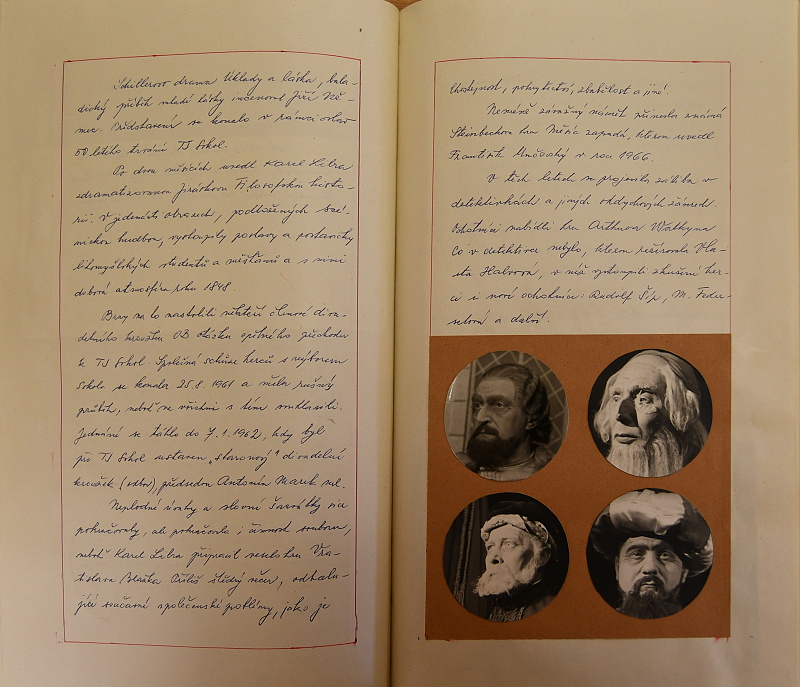 Schillerovo drama Úklady a láska, bala-
dický příběh mladé lásky inscenoval Jiří Ně-
mec. Představení se konalo v rámci oslav
50 letého trvání TJ Sokol.
Po dvou měsících uvedl Karel Libra
zdramatizovanou Jiráskovu Filosofskou histo-
rii. V jedenácti obrazech, podložených scé-
nickou hudbou, vystoupily postavy a postavičky
litomyšlských studentů a měšťanů a s nimi
dobová atmosféra roku 1848.
Brzy na to nastolili někteří členové diva-
delního kroužku OB otázku zpětného přechodu
k TJ Sokol. Společná schůze herců s výborem
Sokola se konala 25.8.1961 a měla rušný
průběh, neboť ne všichni s tím souhlasili.
Jednání se táhlo do 7.1.1962, kdy byl
při TJ Sokol ustaven „staronový" divadelní
kroužek (odbor), předseda Antonín Marek ml.
Neplodné úvahy a slovní šarvátky sice
pokračovaly, ale pokračovala i činnost souboru,
neboť Karel Libra připravil veselohru Vra-
tislava Blažka Příliš štědrý večer, odhalu-
jící současné společenské problémy, jako je
lhostejnost, pokrytectví, zbabělost a jiné.
Neméně závažný námět přinesla známá
Steinbeckova hra Měsíc zapadá, kterou uvedl
František v roce 1966.
V těch letech se projevila záliba v
detektivkách a jiných oddychových žánrech.
Ochotníci nabídli hru Arthura Watkyna
Co v detektivce nebylo, kterou režírovala Vla-
sta Habrová, v níž vystoupili zkušení her-
ci i noví ochotníci: Rudolf Šíp, M. Feder-
selová a další.